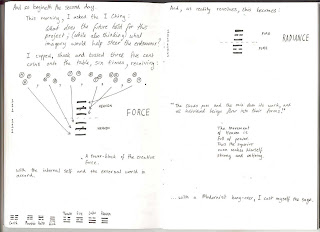 And so beginneth the second day.
This morning, I asked the I Ching:
What does the future hold for this
project, (while also thinking) what
imagery would help steer the endeavour?
I cupped, shook and tossed three five cent
coins onto the table, six times, receiving
HEAVEN
FORCE
HEAVEN
A power-blast of the creative
force,
with the internal self and the external world in
accord.
Earth
Thunder
Fire
Lake
Heaven
And, as reality revolves, this becomes:
FIRE
RADIANCE
FIRE
"The clouds pass and the rain does its work, and
all individual beings flow into their forms."
The Movement
of Heaven is
full of power.
Thus the superior
man makes himself
strong and untiring.
...with a Modernist hang-over, I cast myself the sage.